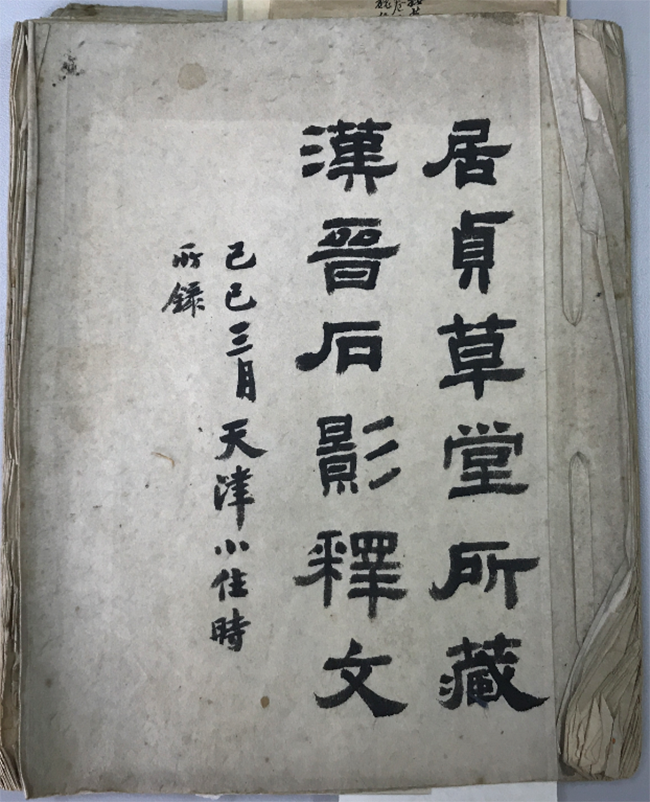 居貞草堂所藏
漢晉石影釋文
己巳三月天津小住時
所錄